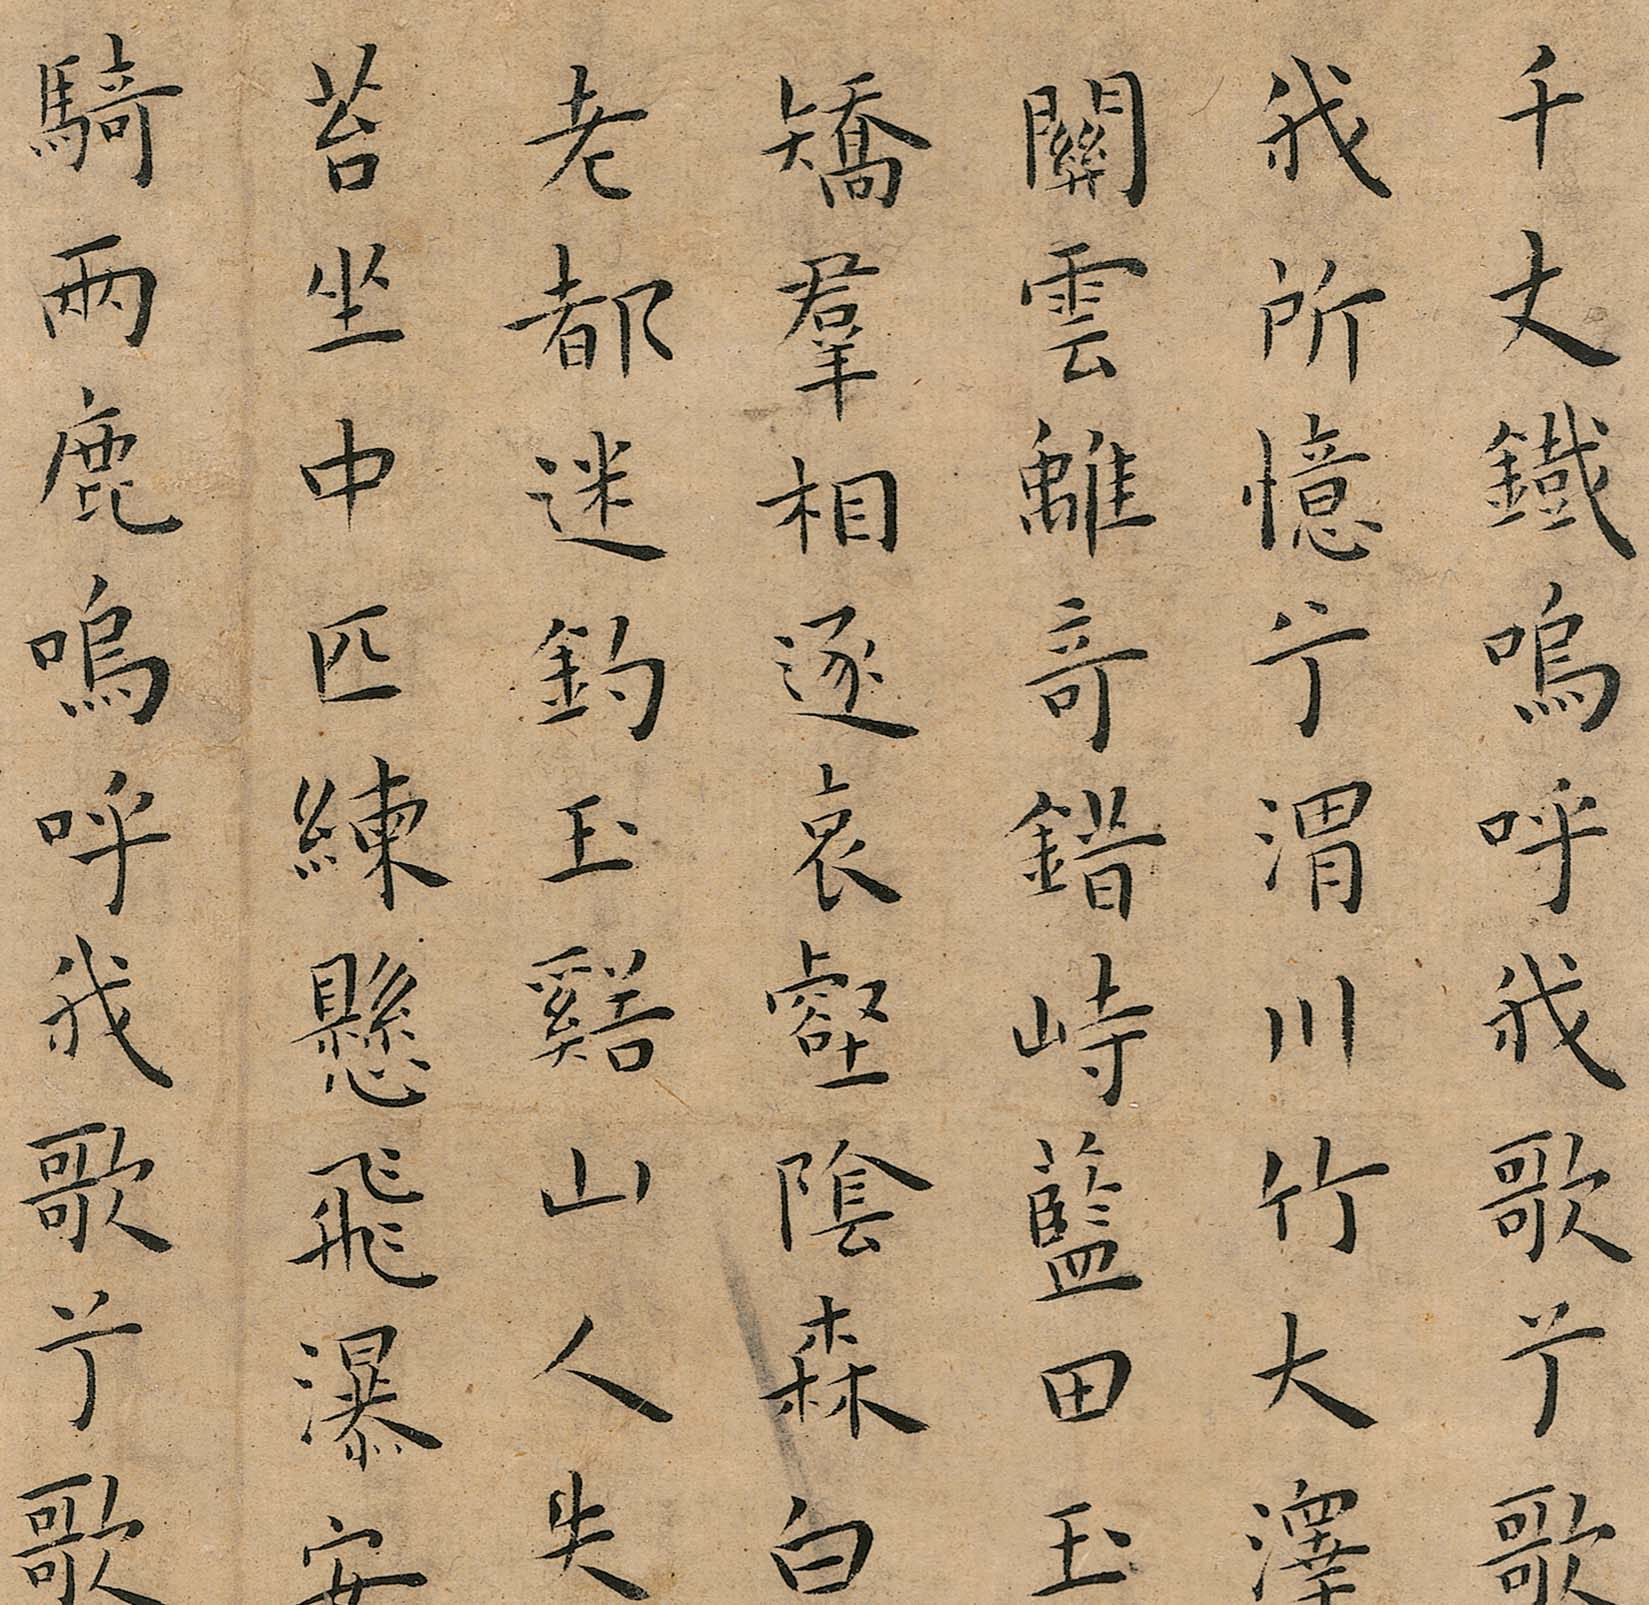 千丈鐵嗚呼我歌兮歌
我所憶兮渭川竹大澤
關雲離奇錯峙藍田玉
矯羣相逐哀壑陰森白
老都迷釣玉谿山人失
苔坐中匹練懸飛瀑安
騎兩鹿嗚呼我歌兮歌